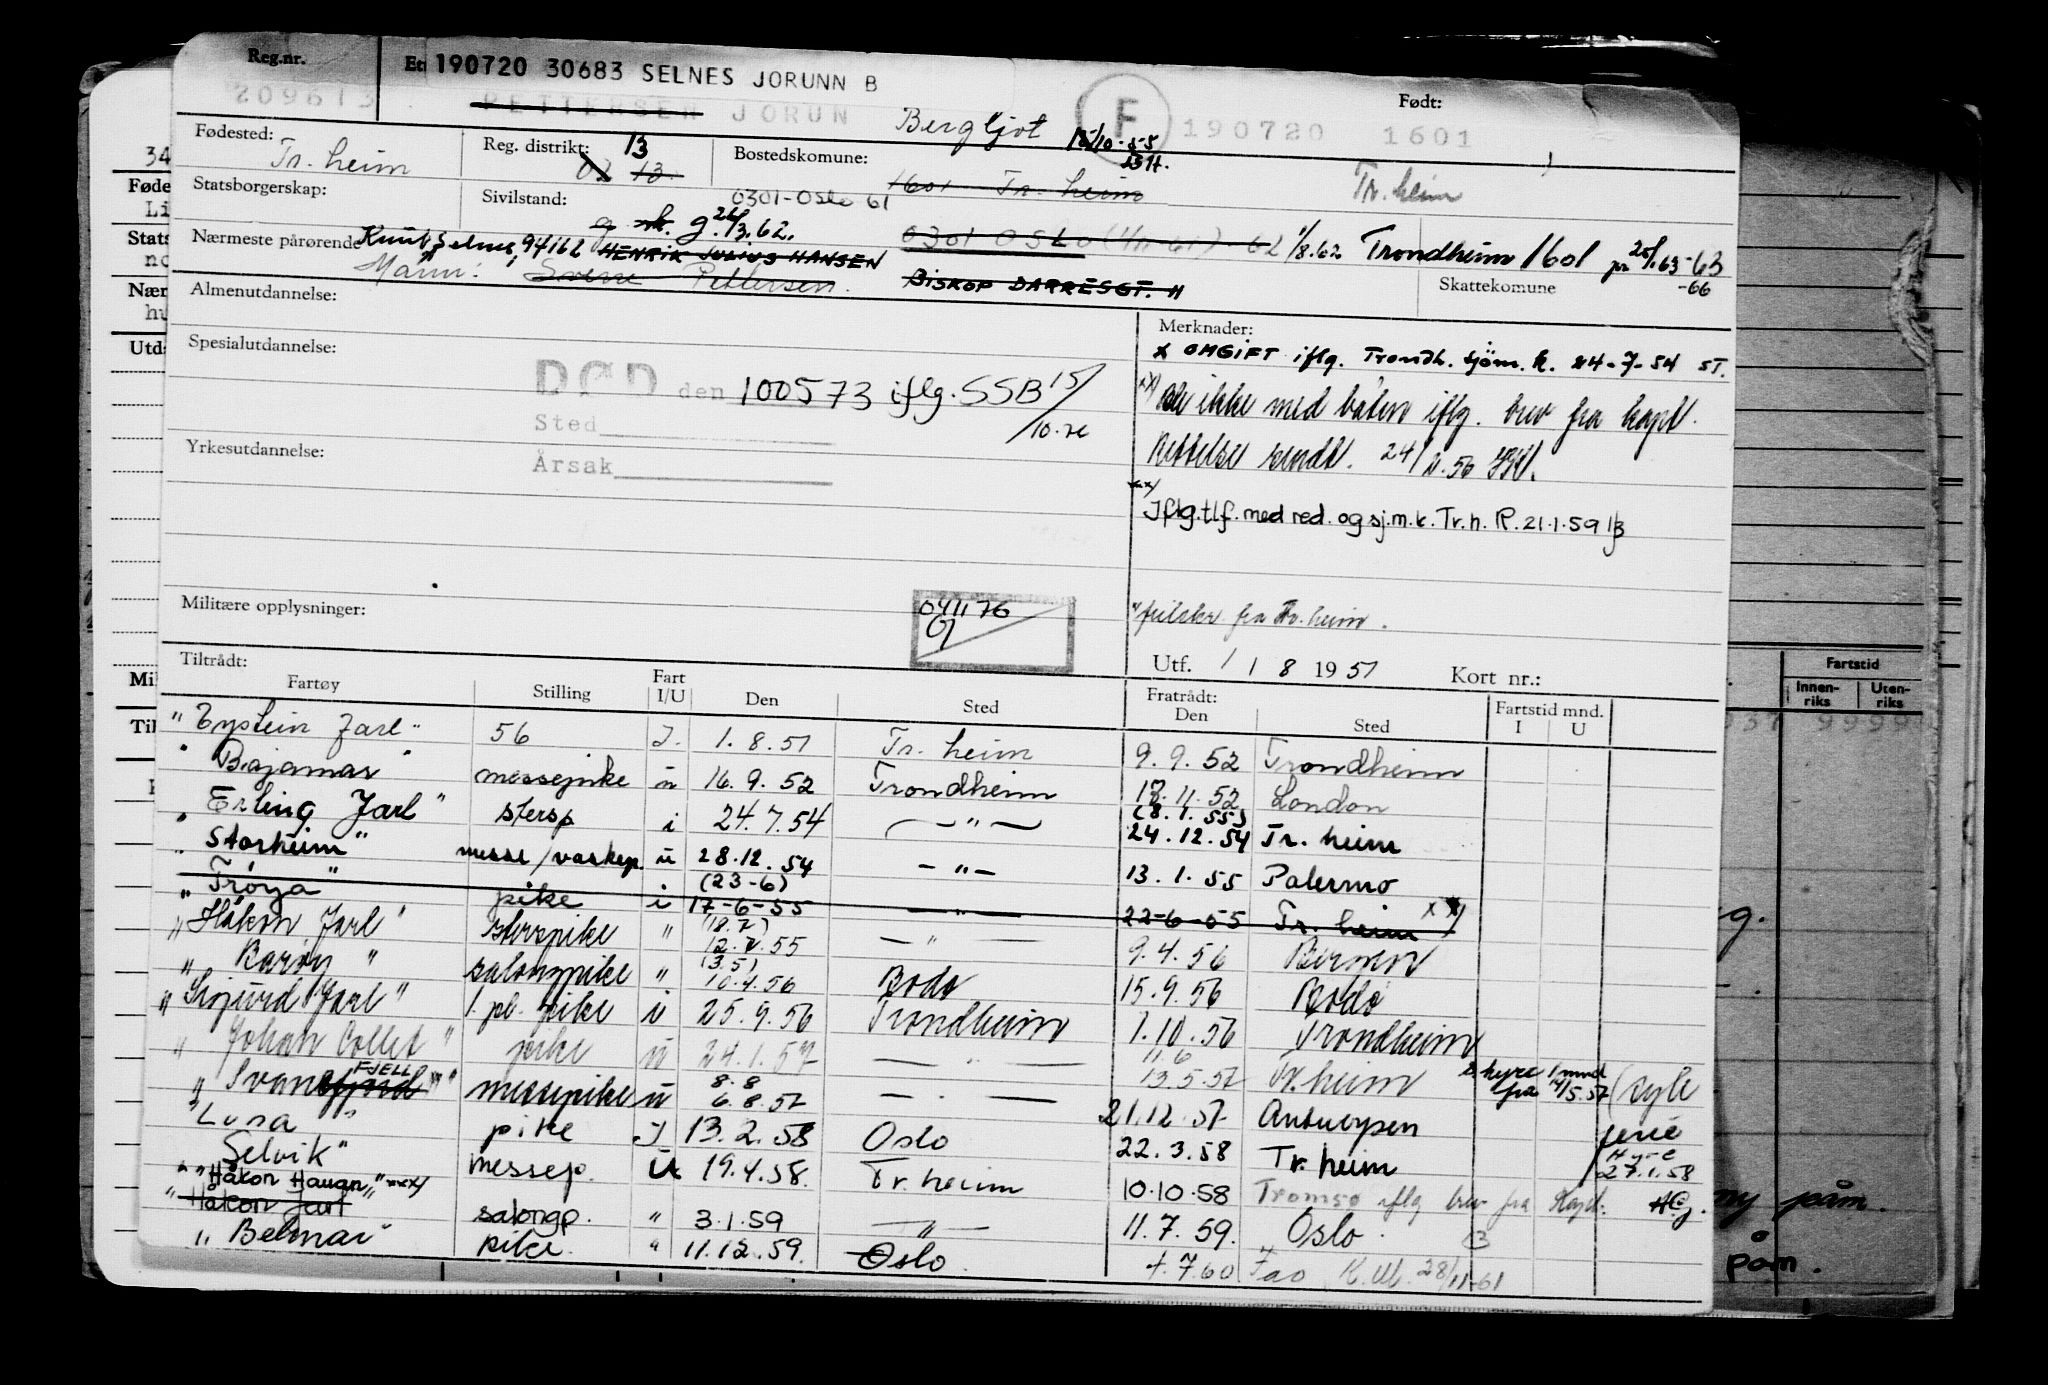 Reg.nr. 209613 Et 190720 30683 SELNES JORUNN B
PETTERSEN JORUN Bergljot F Født: 190720 1601
Fødested: Tr. heim Reg. distrikt: 13 02 13. Bostedskomune: 1601 Tr. heim Tr. heim
Statsborgerskap: Sivilstand: 0301-Oslo 61
g g. 26/3.62. 0301 OSLO 1/8.62 Trondheim 1601
Nærmeste pårørende Knut Selnes, 94162 HENRIK JULIUS HANSEN
Mann: Sverre Pettersen. BISKOP DARRESGT. 11 Skattekomune -66
Almenutdannelse:
Merknader:
x OMGIFT iflg. Trondh. sjøm. k. 24-7-54 ST.
Spesialutdannelse:
DØD den 100573 iflg. SSB 15/10.
Sted
ikke med båten iflg. brev fra kapt.
Yrkesutdannelse:
Årsak
Rettelse sendt. 24/2.56
xxx/ Iflg. tlf. med red. og sj.m.k. Tr.h. R. 21.1.59
Militære opplysninger: 041176
fra Tr. heim.
Utf. 1 8 1951 Kort nr.:
Tiltrådt: Fratrådt:
Fartøy Stilling Fart I/U Den Sted Den Sted Fartstid mnd. I U
"Eystein Jarl" 56 I. 1.8.51 Tr. heim 9.9.52 Trondheim
" Bajamar " messepike u 16.9.52 Trondheim 18.11.52 London
" Erling Jarl" stersp i 24.7.54 — " — (8.1.55) 24.12.54 Tr. heim
" Storheim" messe/vaskep u 28.12.54 — " — 13.1.55 Palermo
" Trøya" pike i (23-6) 17-6-55 — " — 22-6-55 Tr. heim xx/
" Håkon Jarl" sterspike " (18.7) 12.7.55 — " — 9.4.56 Bergen
" Barøy " salongpike " (3.5) 10.4.56 Bodø 15.9.56 Bodø
" Sigurd Jarl" 1. pl. pike i 25.9.56 Trondheim 1.10.56 Trondheim
" Johan Collet " pike u 24.1.57 — " — 11.6 13.5.57 Tr. heim hyre 1 mnd fra 14/5.57 (syk
" Svanefjell " messepike u 8.8 6.8.57 — " — 21.12.57 Antwerpen
"Luna " pike I 13.2.58 Oslo 22.3.58 Tr. heim ferie Hyre 27.1.58
Selvik" messep. u 19.4.58. Tr. heim 10.10.58 Tromsø iflg brev fra Kapt.
" "Håkon Haugn," xxx/
" Håkon Jarl salongp. " 3.1.59 — " — 11.7.59. Oslo
" Belmar" pike. " 11.12.59. Oslo 7.60 28/11-61
Fartstid
Innenriks Utenriks
ny påm.
påm.